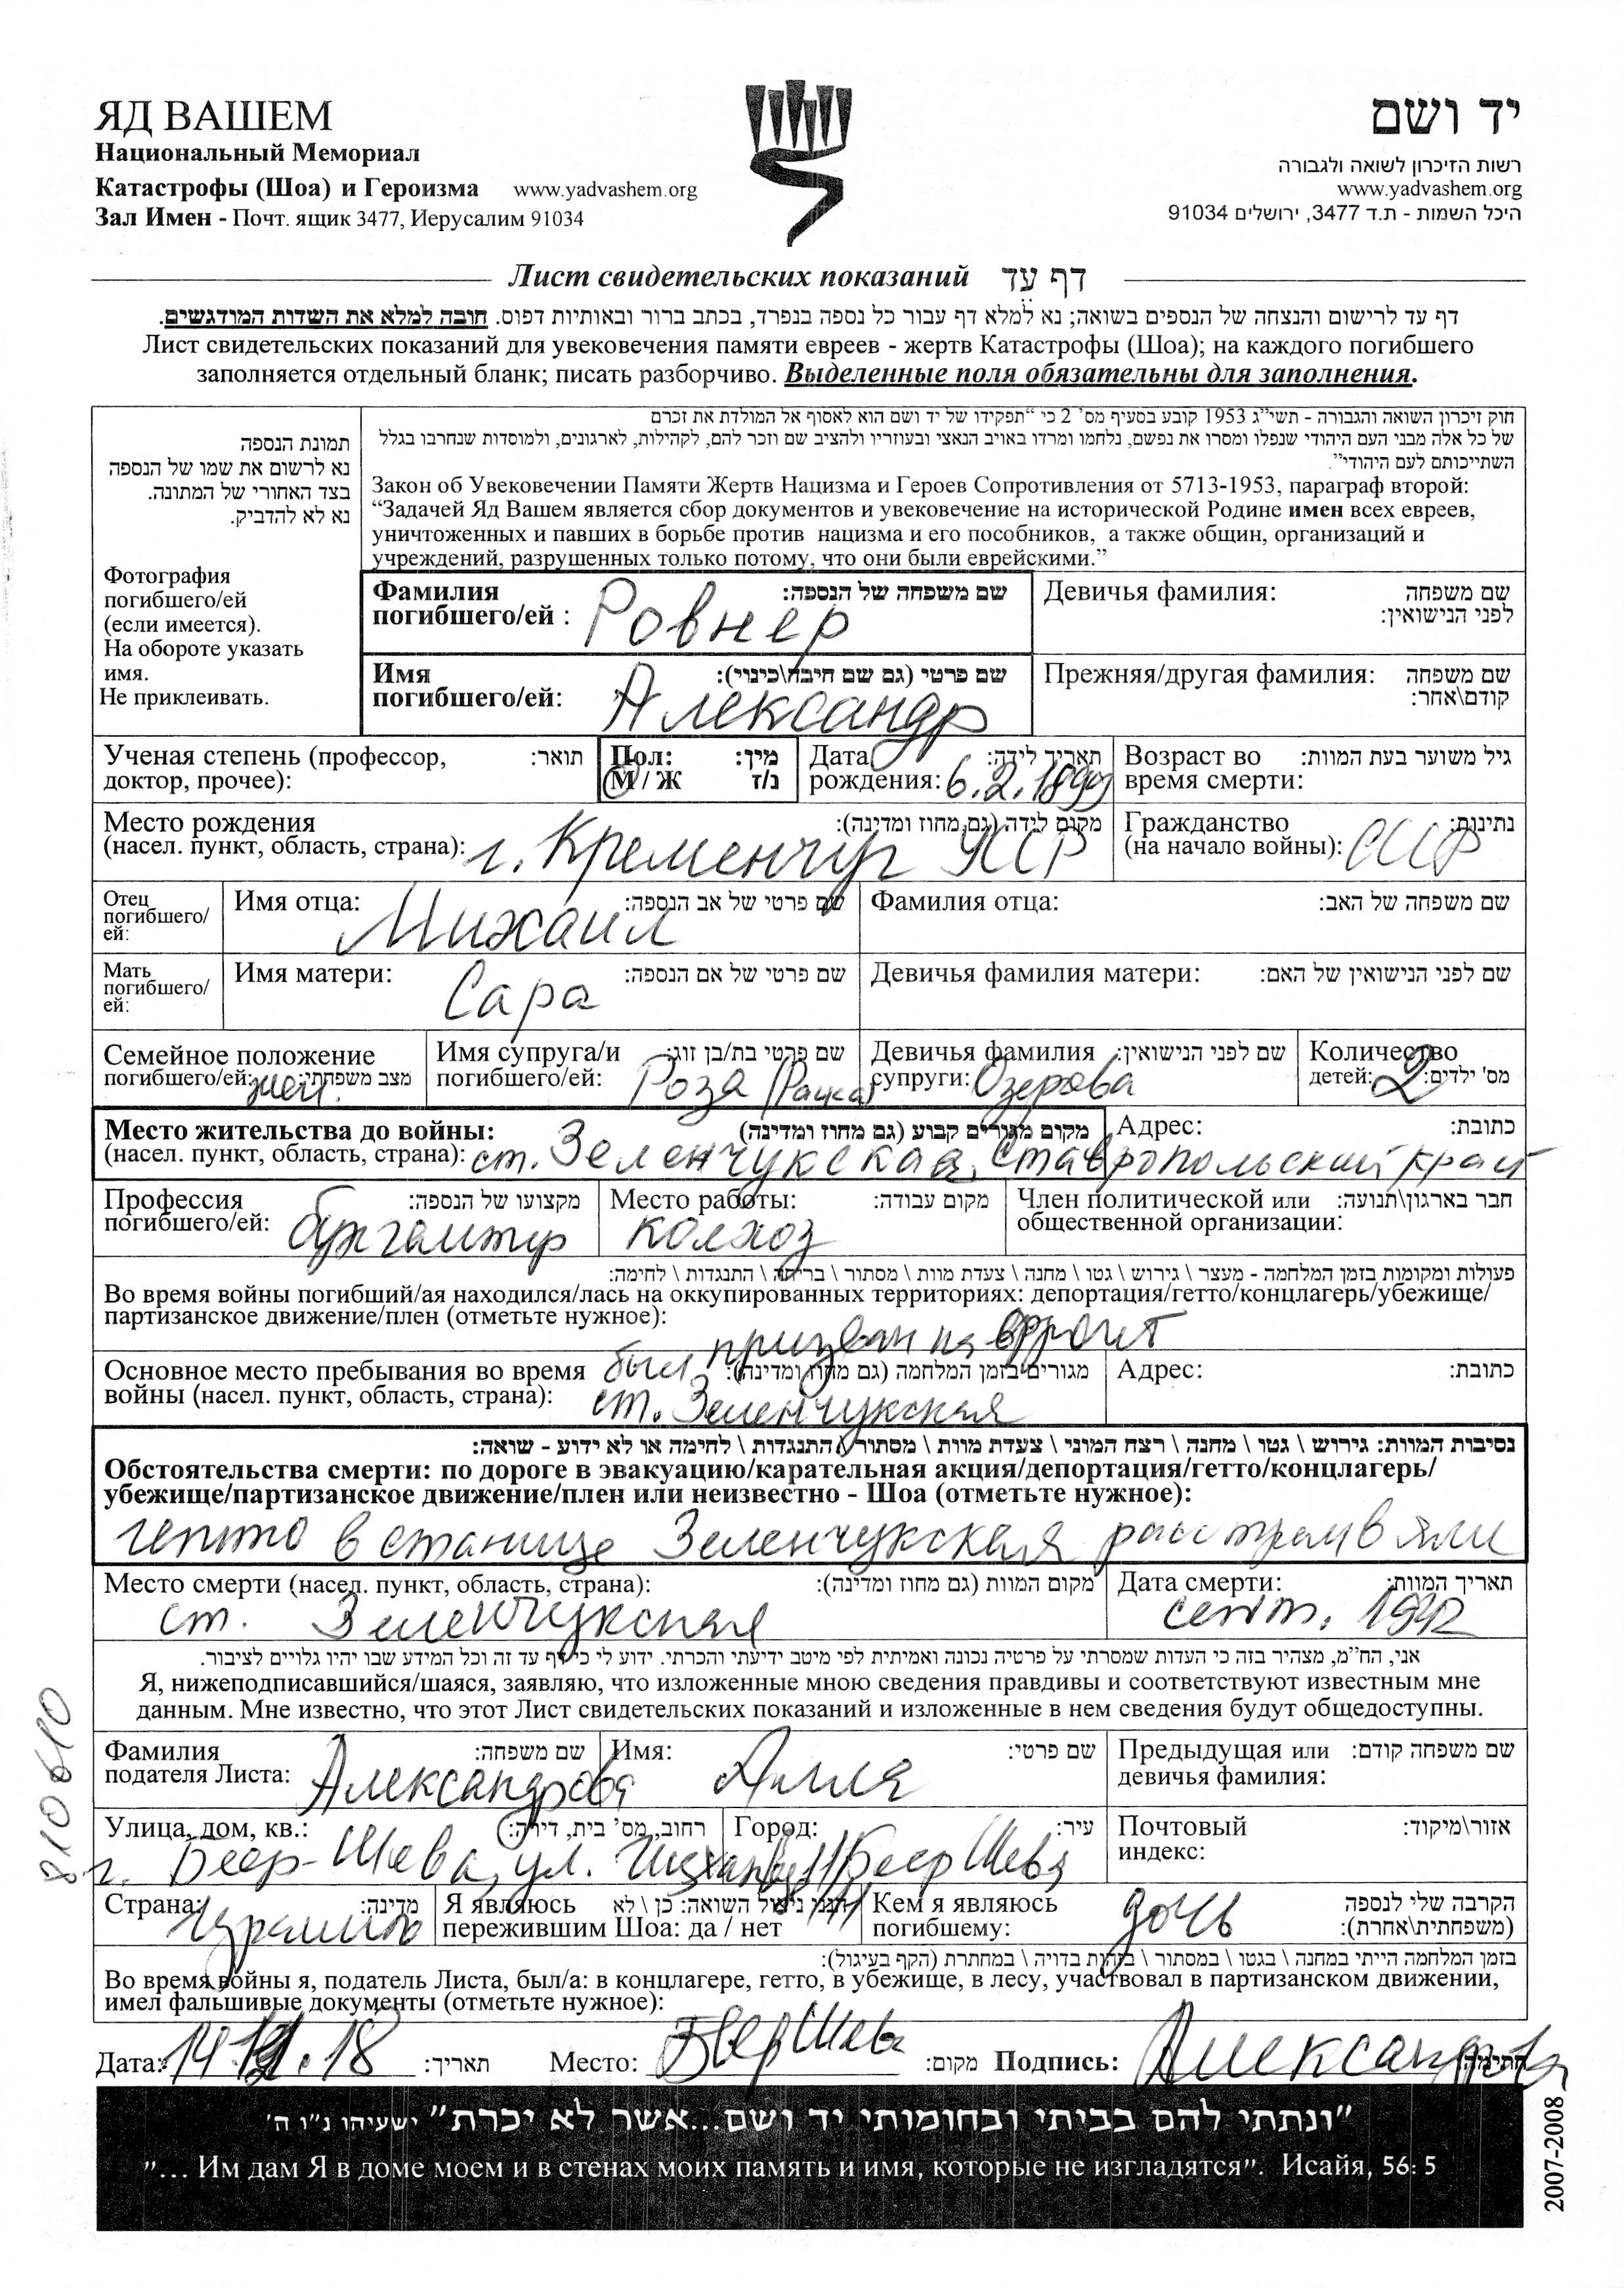 ЯД ВАШЕМ
Национальный Мемориал
Катастрофы (Шоа) и Героизма www.yadvashem.org
Зал Имен - Почт. ящик 3477, Иерусалим 91034
יד ושם
רשות הזיכרון לשואה ולגבורה
www.yadvashem.org
היכל השמות - ת.ד 3477, ירושלים 91034
Лист свидетельских показаний דף עד
דף עד לרישום והנצחה של הנספים בשואה; נא למלא דף עבור כל נספה בנפרד, בכתב ברור ובאותיות דפוס. חובה למלא את השדות המודגשים.
Лист свидетельских показаний для увековечения памяти евреев - жертв Катастрофы (Шоа); на каждого погибшего
заполняется отдельный бланк; писать разборчиво. Выделенные поля обязательны для заполнения.
תמונת הנספה
נא לרשום את שמו של הנספה
בצד האחורי של המתונה.
נא לא להדביק.
Фотография
погибшего/ей
(если имеется).
На обороте указать
имя.
Не приклеивать.
חוק זיכרון השואה והגבורה - תשי"ג 1953 קובע בסעיף מס' 2 כי "תפקידו של יד ושם הוא לאסוף אל המולדת את זכרם
של כל אלה מבני העם היהודי שנפלו ומסרו את נפשם, נלחמו ומרדו באויב הנאצי ובעוזריו ולהציב שם וזכר להם, לקהילות, לארגונים, ולמוסדות שנחרבו בגלל
השתייכותם לעם היהודי".
Закон об Увековечении Памяти Жертв Нацизма и Героев Сопротивления от 5713-1953, параграф второй:
“Задачей Яд Вашем является сбор документов и увековечение на исторической Родине имен всех евреев,
уничтоженных и павших в борьбе против нацизма и его пособников, а также общин, организаций и
учреждений, разрушенных только потому, что они были еврейскими.”
Фамилия שם משפחה של הנספה:
погибшего/ей : Ровнер
Девичья фамилия: שם משפחה
לפני הנישואין:
Имя שם פרטי (גם שם חיבה\כינוי):
погибшего/ей: Александр
Прежняя/другая фамилия: שם משפחה
קודם\אחר:
Ученая степень (профессор, תואר:
доктор, прочее):
Пол: מין:
М / Ж ז/נ
Дата תאריך לידה:
рождения: 6.2.1899
Возраст во גיל משוער בעת המוות:
время смерти:
Место рождения מקום לידה (גם מחוז ומדינה):
(насел. пункт, область, страна): г. Кременчуг УССР
Гражданство נתינות:
(на начало войны): СССР
Отец
погибшего/
ей:
Имя отца: שם פרטי של אב הנספה:
Михаил
Фамилия отца: שם משפחה של האב:
Мать
погибшего/
ей:
Имя матери: שם פרטי של אם הנספה:
Сара
Девичья фамилия матери: שם לפני הנישואין של האם:
Семейное положение
погибшего/ей: מצב משפחתי: жен.
Имя супруга/и שם פרטי בת/בן זוג:
погибшего/ей: Роза
Девичья фамилия שם לפני הנישואין:
супруги: Озерова
Количество
детей: 2 מס' ילדים:
Место жительства до войны: מקום מגורים קבוע (גם מחוז ומדינה)
(насел. пункт, область, страна): ст. Зеленчукская, Ставропольский край
Адрес: כתובת:
Профессия מקצועו של הנספה:
погибшего/ей: бухгалтер
Место работы: מקום עבודה:
колхоз
Член политической или חבר בארגון\תנועה:
общественной организации:
פעולות ומקומות בזמן המלחמה - מעצר \ גירוש \ גטו \ מחנה \ צעדת מוות \ מסתור \ בריחה \ התנגדות \ לחימה:
Во время войны погибший/ая находился/лась на оккупированных территориях: депортация/гетто/концлагерь/убежище/
партизанское движение/плен (отметьте нужное):
был призван на фронт
Основное место пребывания во время מגורים בזמן המלחמה (גם מחוז ומדינה):
войны (насел. пункт, область, страна): ст. Зеленчукская
Адрес: כתובת:
נסיבות המוות: גירוש \ גטו \ מחנה \ רצח המוני \ צעדת מוות \ מסתור \ התנגדות \ לחימה או לא ידוע - שואה:
Обстоятельства смерти: по дороге в эвакуацию/карательная акция/депортация/гетто/концлагерь/
убежище/партизанское движение/плен или неизвестно - Шоа (отметьте нужное):
гетто в станице Зеленчукская
Место смерти (насел. пункт, область, страна): מקום המוות (גם מחוז ומדינה):
ст. Зеленчукская
Дата смерти: תאריך המוות:
сент. 1942
אני, הח"מ, מצהיר בזה כי העדות שמסרתי על פרטיה נכונה ואמיתית לפי מיטב ידיעתי והכרתי. ידוע לי כי דף עד זה וכל המידע שבו יהיו גלויים לציבור.
Я, нижеподписавшийся/шаяся, заявляю, что изложенные мною сведения правдивы и соответствуют известным мне
данным. Мне известно, что этот Лист свидетельских показаний и изложенные в нем сведения будут общедоступны.
Фамилия שם משפחה:
подателя Листа: Александрова
Имя: שם פרטי:
Алла
Предыдущая или שם משפחה קודם:
девичья фамилия:
Улица, дом, кв.: רחוב, מס' בית, דירה:
г. Беер-Шева, ул.
Город: עיר:
Беер Шева
Почтовый אזור\מיקוד:
индекс:
Страна: מדינה:
Израиль
Я являюсь הנני ניצול השואה: כן \ לא
пережившим Шоа: да / нет
Кем я являюсь הקרבה שלי לנספה
погибшему: дочь (משפחתית\אחרת):
בזמן המלחמה הייתי במחנה \ בגטו \ במסתור \ בזהות בדויה \ במחתרת (הקף בעיגול):
Во время войны я, податель Листа, был/а: в концлагере, гетто, в убежище, в лесу, участвовал в партизанском движении,
имел фальшивые документы (отметьте нужное):
Дата: תאריך: Место: Беер Шева מקום: Подпись: Александрова חתימה:
"ונתתי להם בביתי ובחומותי יד ושם...אשר לא יכרת" ישעיהו נ"ו ה'
”... Им дам Я в доме моем и в стенах моих память и имя, которые не изгладятся”. Исайя, 56: 5
2007-2008